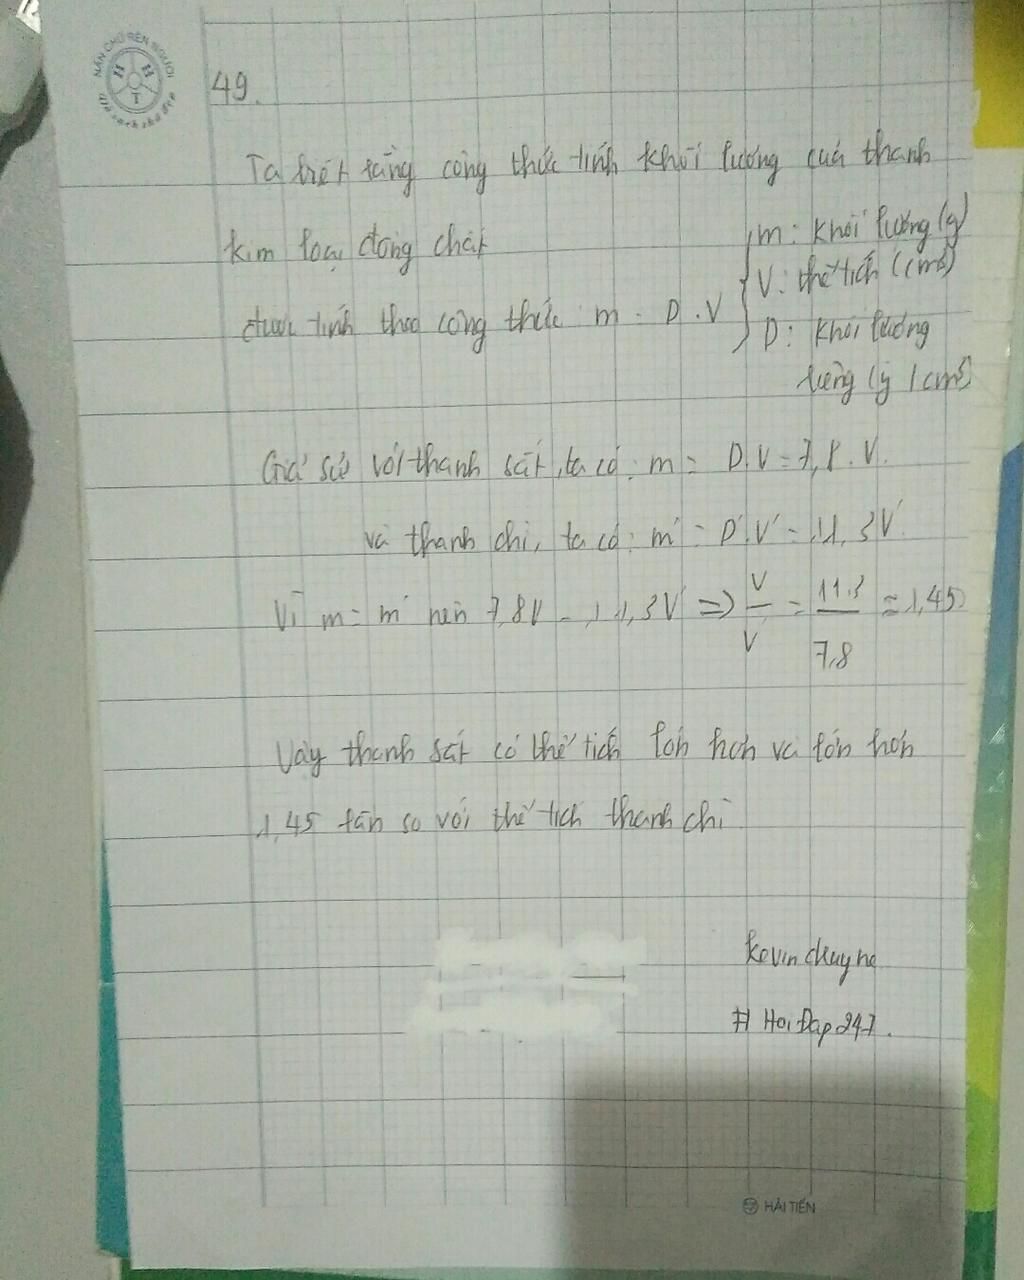 NẮN CHỮ RÈN NGƯỜI
H H
T
Vở sạch chữ đẹp
49.
Ta biết rằng công thức tính khối lượng của thanh
kim loại đồng chất
được tính theo công thức: m = D.V
m: khối lượng (g)
V: thể tích (cm³)
D: khối lượng
riêng (g/cm³)
Giả sử với thanh sắt, ta có: m = D.V = 7,8.V.
và thanh chì, ta có: m' = D'.V' = 11,3V'
Vì m = m' nên 7,8V = 11,3V' => V/V' = 11.3/7,8 ≈ 1,45
Vậy thanh sắt có thể tích lớn hơn và lớn hơn
1,45 lần so với thể tích thanh chì
kevin chuy ne
# Hoi Đap 247.
HẢI TIẾN